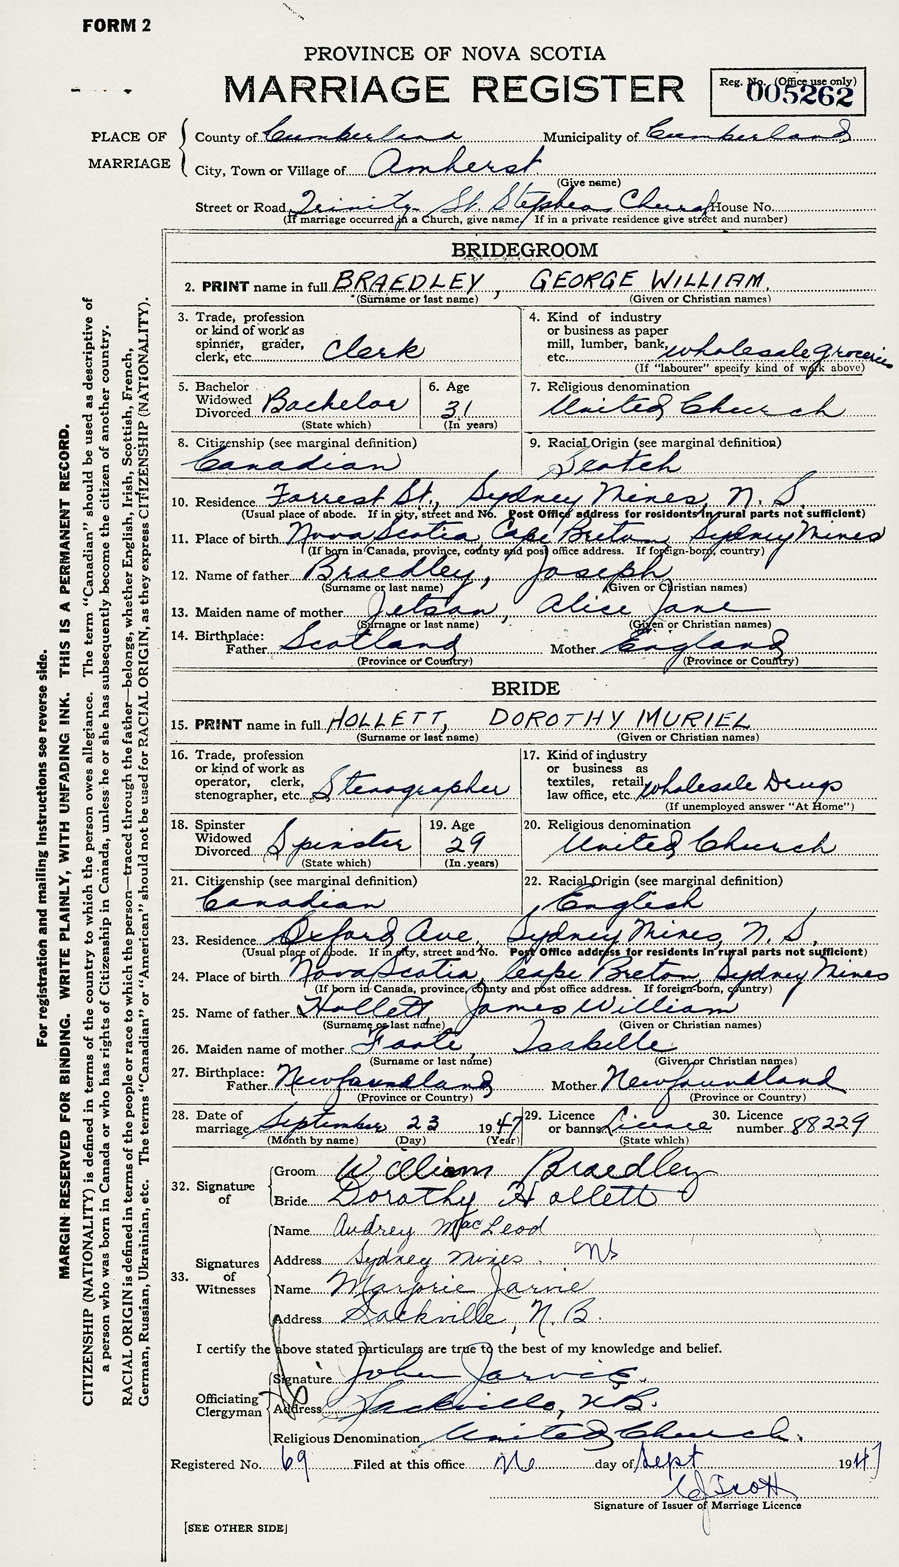 FORM 2
PROVINCE OF NOVA SCOTIA
MARRIAGE REGISTER
Reg. No. (Office use only)
005262
PLACE OF MARRIAGE
County of Cumberland Municipality of Cumberland
City, Town or Village of Amherst
(Give name)
Street or Road Trinity St. Stephens Church House No.
(If marriage occurred in a Church, give name. If in a private residence give street and number)
BRIDEGROOM
2. PRINT name in full BRAEDLEY, GEORGE WILLIAM.
(Surname or last name) (Given or Christian names)
3. Trade, profession or kind of work as spinner, grader, clerk, etc. Clerk
4. Kind of industry or business as paper mill, lumber, bank, etc. wholesale groceries
(If "labourer" specify kind of work above)
5. Bachelor Widowed Divorced Bachelor
(State which)
6. Age 31
(In years)
7. Religious denomination United Church
8. Citizenship (see marginal definition) Canadian
9. Racial Origin (see marginal definition) Scotch
10. Residence Forrest St., Sydney Mines, N. S
(Usual place of abode. If in city, street and No. Post Office address for residents in rural parts not sufficient)
11. Place of birth Nova Scotia, Cape Breton, Sydney Mines
(If born in Canada, province, county and post office address. If foreign-born, country)
12. Name of father Braedley, Joseph
(Surname or last name) (Given or Christian names)
13. Maiden name of mother Jetson, Alice Jane
(Surname or last name) (Given or Christian names)
14. Birthplace: Father Scotland Mother England
(Province or Country) (Province or Country)
BRIDE
15. PRINT name in full HOLLETT, DOROTHY MURIEL
(Surname or last name) (Given or Christian names)
16. Trade, profession or kind of work as operator, clerk, stenographer, etc. Stenographer
17. Kind of industry or business as textiles, retail, law office, etc. wholesale Drugs
(If unemployed answer "At Home")
18. Spinster Widowed Divorced Spinster
(State which)
19. Age 29
(In years)
20. Religious denomination United Church
21. Citizenship (see marginal definition) Canadian
22. Racial Origin (see marginal definition) English
23. Residence Oxford Ave, Sydney Mines, N. S.
(Usual place of abode. If in city, street and No. Post Office address for residents in rural parts not sufficient)
24. Place of birth Nova Scotia, Cape Breton, Sydney Mines
(If born in Canada, province, county and post office address. If foreign-born, country)
25. Name of father Hollett, James William
(Surname or last name) (Given or Christian names)
26. Maiden name of mother Foote, Isabelle
(Surname or last name) (Given or Christian names)
27. Birthplace: Father Newfoundland Mother Newfoundland
(Province or Country) (Province or Country)
28. Date of marriage September 23 1947
(Month by name) (Day) (Year)
29. Licence or banns Licence
(State which)
30. Licence number 88229
32. Signature of
Groom William Braedley
Bride Dorothy Hollett
33. Signatures of Witnesses
Name Audrey MacLeod
Address Sydney Mines. NS
Name Marjorie Jarvie
Address Sackville, N. B.
I certify the above stated particulars are true to the best of my knowledge and belief.
Officiating Clergyman
Signature John Jarvie.
Address Sackville, N.B.
Religious Denomination United Church.
Registered No. 69 Filed at this office day of Sept 1947
Signature of Issuer of Marriage Licence
[SEE OTHER SIDE]
For registration and mailing instructions see reverse side.
MARGIN RESERVED FOR BINDING. WRITE PLAINLY, WITH UNFADING INK. THIS IS A PERMANENT RECORD.
CITIZENSHIP (NATIONALITY) is defined in terms of the country to which the person owes allegiance. The term "Canadian" should be used as descriptive of
a person who was born in Canada or who has rights of Citizenship in Canada, unless he or she has subsequently become the citizen of another country.
RACIAL ORIGIN is defined in terms of the people or race to which the person—traced through the father—belongs, whether English, Irish, Scottish, French,
German, Russian, Ukrainian, etc. The terms "Canadian" or "American" should not be used for RACIAL ORIGIN, as they express CITIZENSHIP (NATIONALITY).